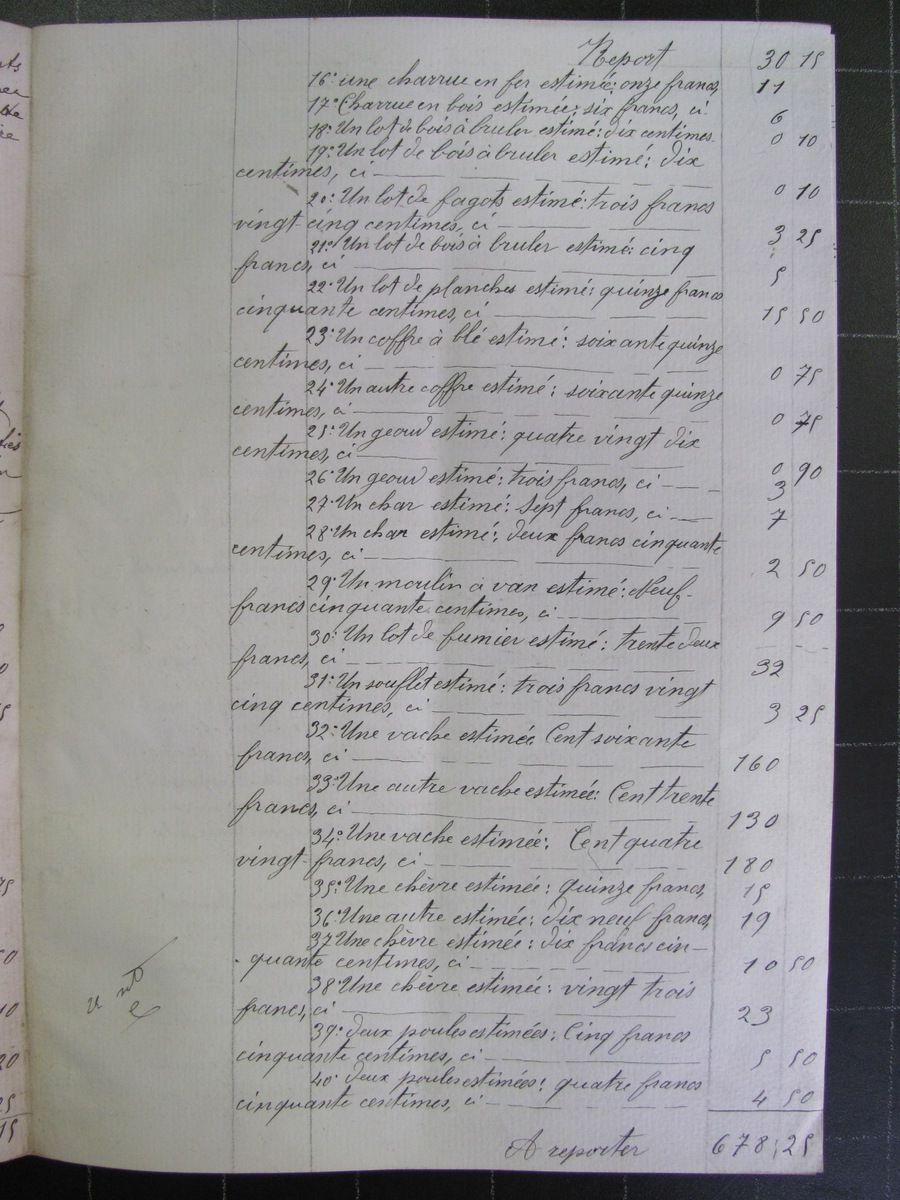 Report 30 15
16° une charrue en fer estimée: onze francs, 11
17° Charrue en bois estimée: six francs, ci 6
18° Un lot de bois à bruler estimé: dix centimes 0 10
19° Un lot de bois à bruler estimé: dix
centimes, ci 0 10
20° Un lot de fagots estimé: trois francs
vingt-cinq centimes, ci 3 25
21° Un lot de bois à bruler estimé: cinq
francs, ci 5
22° Un lot de planches estimé: quinze francs
cinquante centimes, ci 15 50
23° Un coffre à blé estimé: soixante quinze
centimes, ci 0 75
24° Un autre coffre estimé: soixante quinze
centimes, ci 0 75
25° Un geoud estimé: quatre vingt dix
centimes, ci 0 90
26° Un geoud estimé: trois francs, ci 3
27° Un char estimé: sept francs, ci 7
28° Un char estimé: deux francs cinquante
centimes, ci 2 50
29° Un moulin à van estimé: Neuf
francs cinquante centimes, ci 9 50
30° Un lot de fumier estimé: trente deux
francs, ci 32
31° Un souflet estimé: trois francs vingt
cinq centimes, ci 3 25
32° Une vache estimée Cent soixante
francs, ci 160
33° Une autre vache estimée: Cent trente
francs, ci 130
34° Une vache estimée: Cent quatre
vingt-francs, ci 180
35° Une chèvre estimée: quinze francs, 15
36° Une autre estimée: dix neuf francs, 19
37 Une chèvre estimée: dix francs cin-
quante centimes, ci 10 50
38° Une chèvre estimée: vingt trois
francs, ci 23
39° deux poules estimées: Cinq francs
cinquante centimes, ci 5 50
40° deux poules estimées: quatre francs
cinquante centimes, ci 4 50
A reporter 678,25